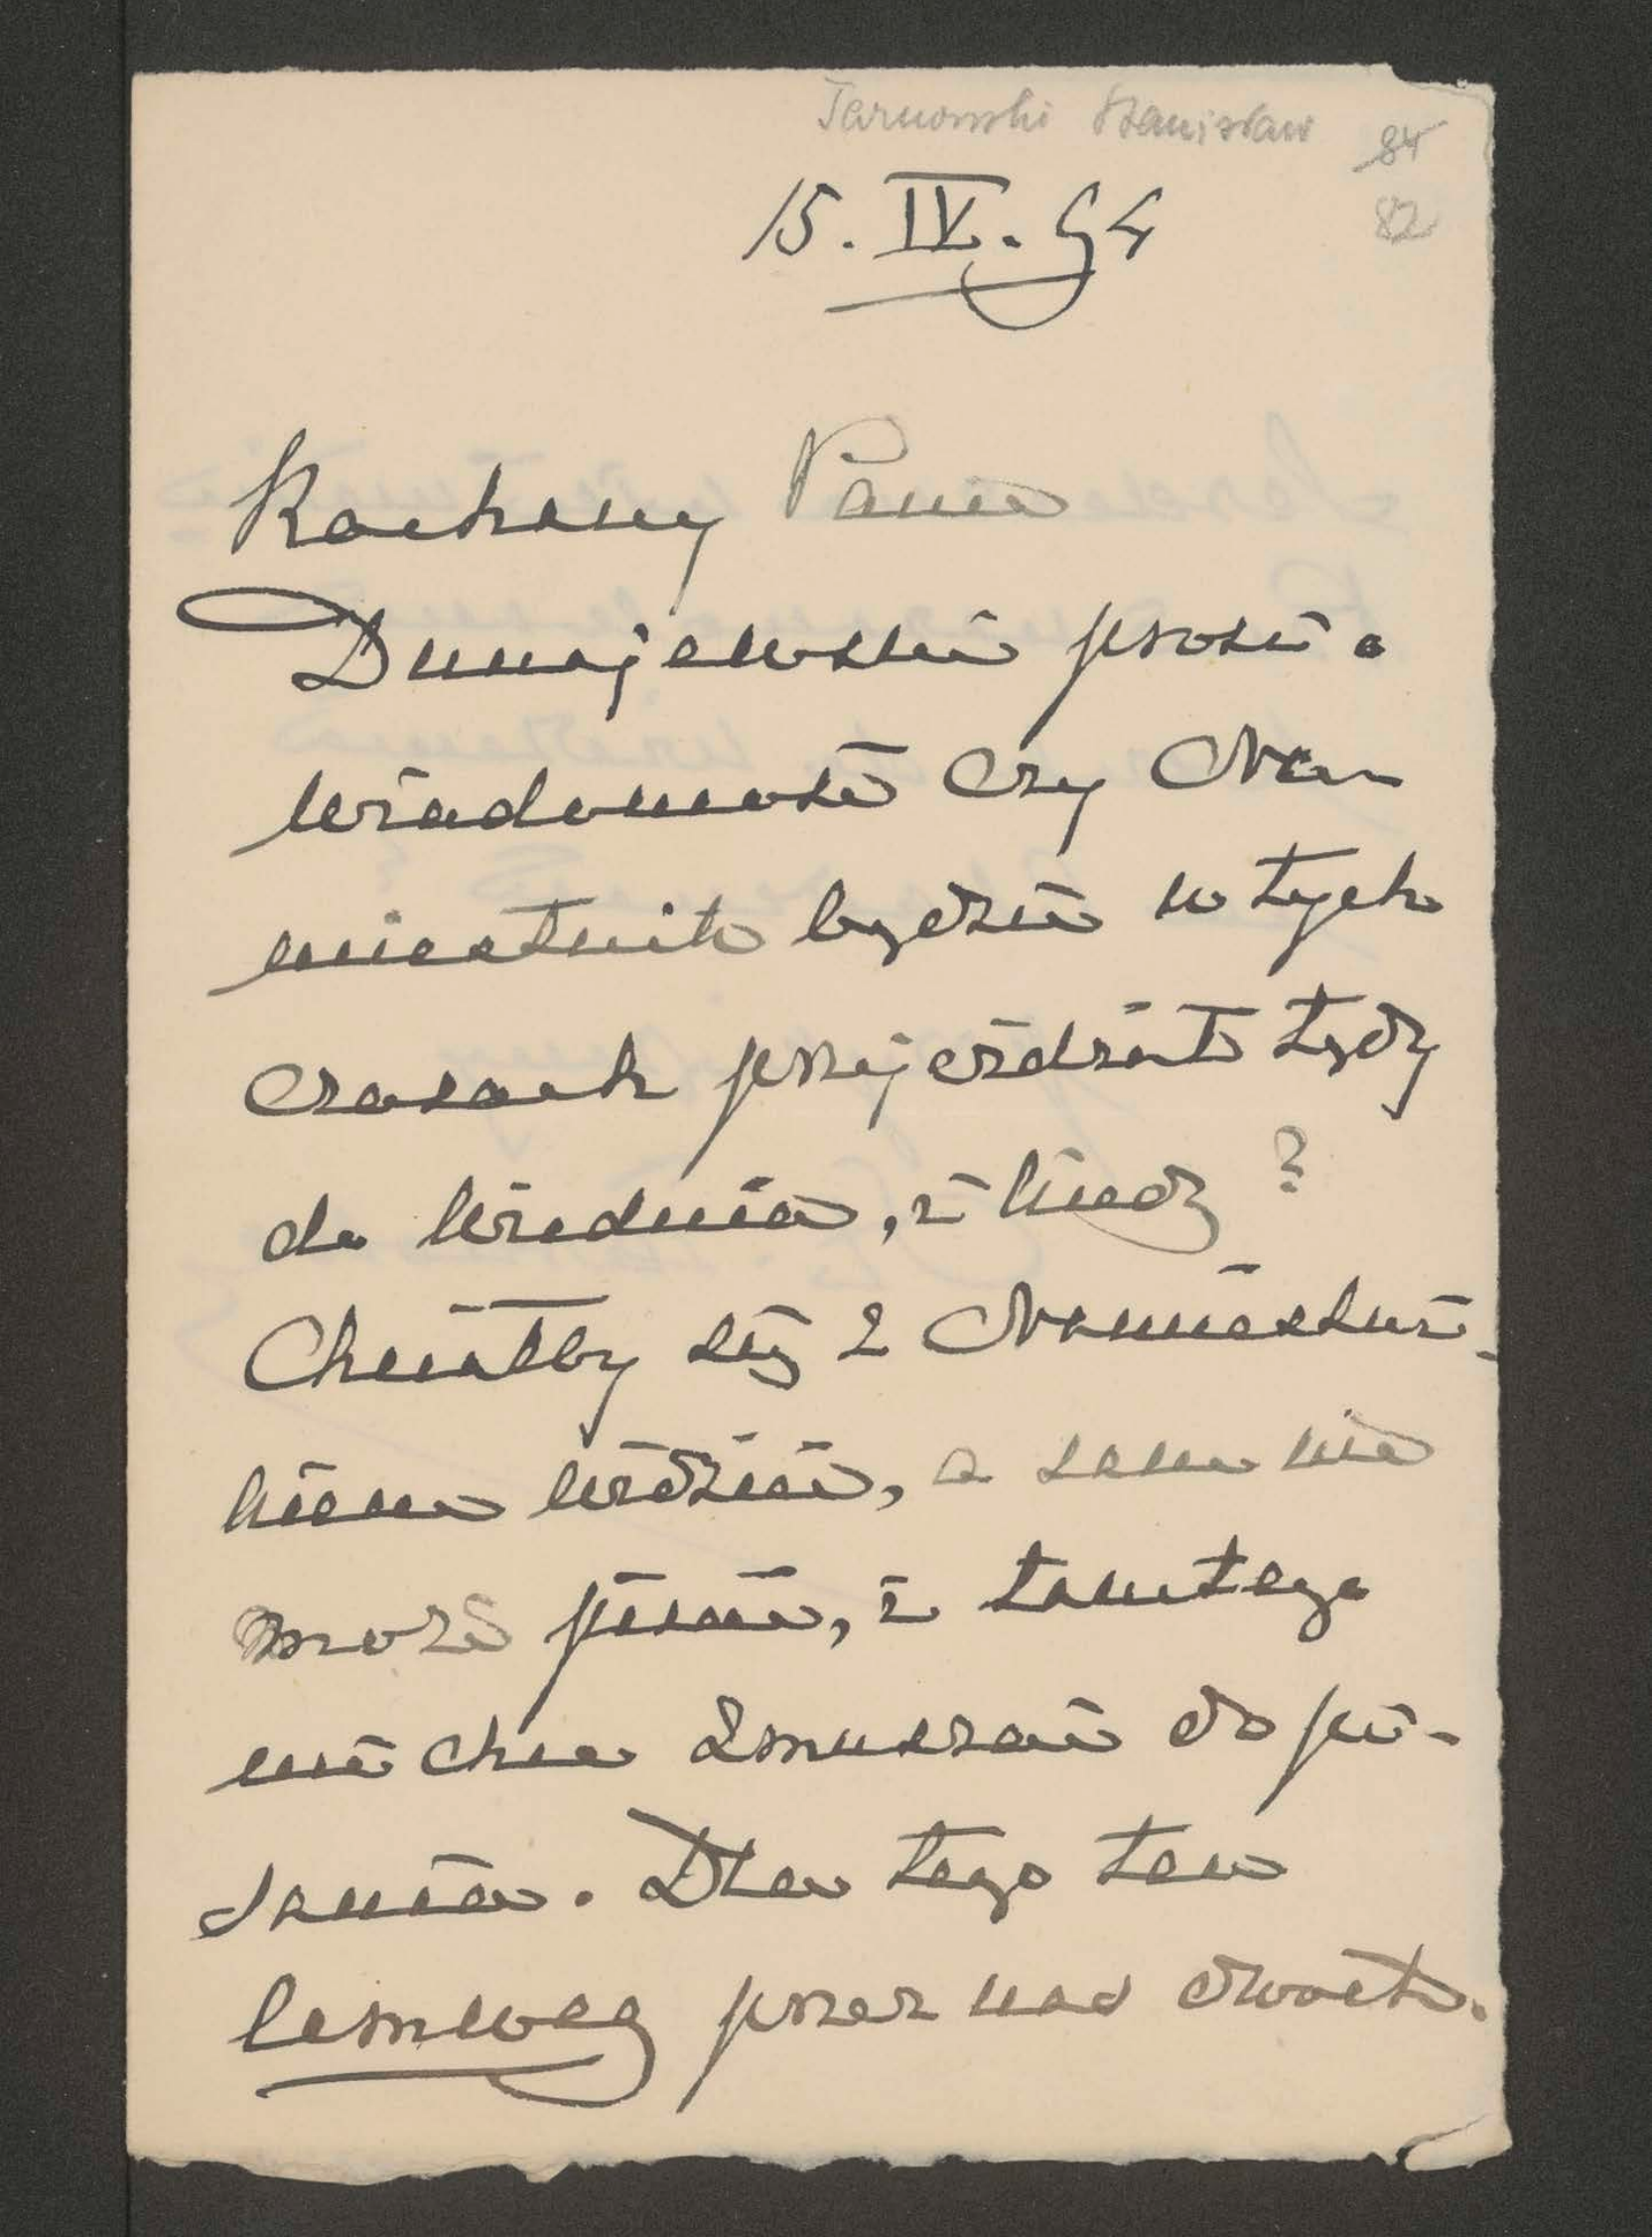 Tarnowski Stanisław 84
82
15. IV. 94
Kochany Panie
Dunajewski prosi o
wiadomość czy Na-
miestnik będzie w tych
czasach przejeżdżał tędy
do Wiednia, i kiedy?
Chciałby się z Namiestni-
kiem widzieć, a sam nie
może pisać, i tamtego
nie chce zmuszać do pi-
sania. Dla tego ten
przez nas dwóch.